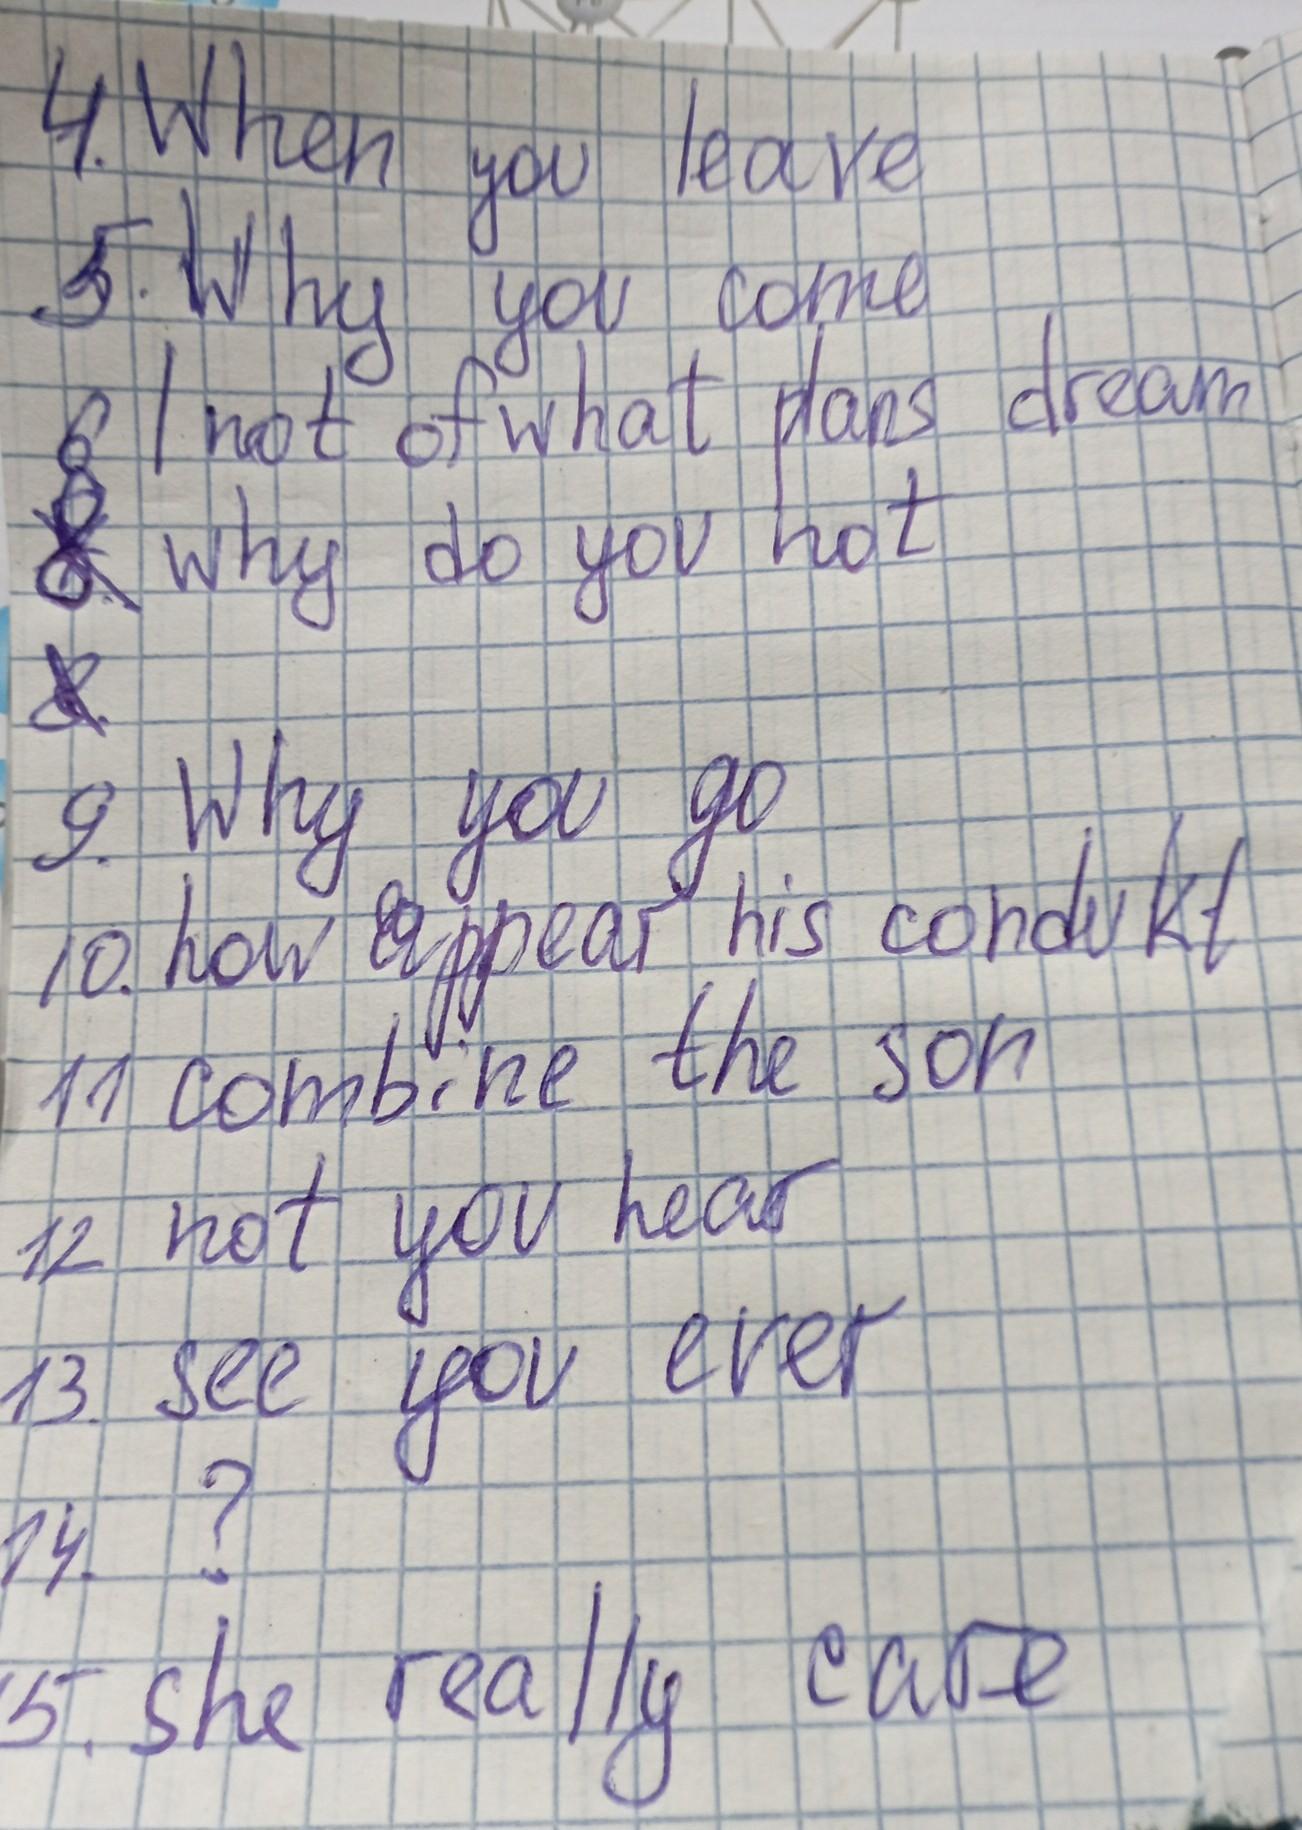 4. When you leave
5. Why you come
6 I not of what plans dream
why do you not
9. Why you go
10. how appear his condukt
11 combine the son
12 not you hear
13. see you ever
14. ?
15. she really care